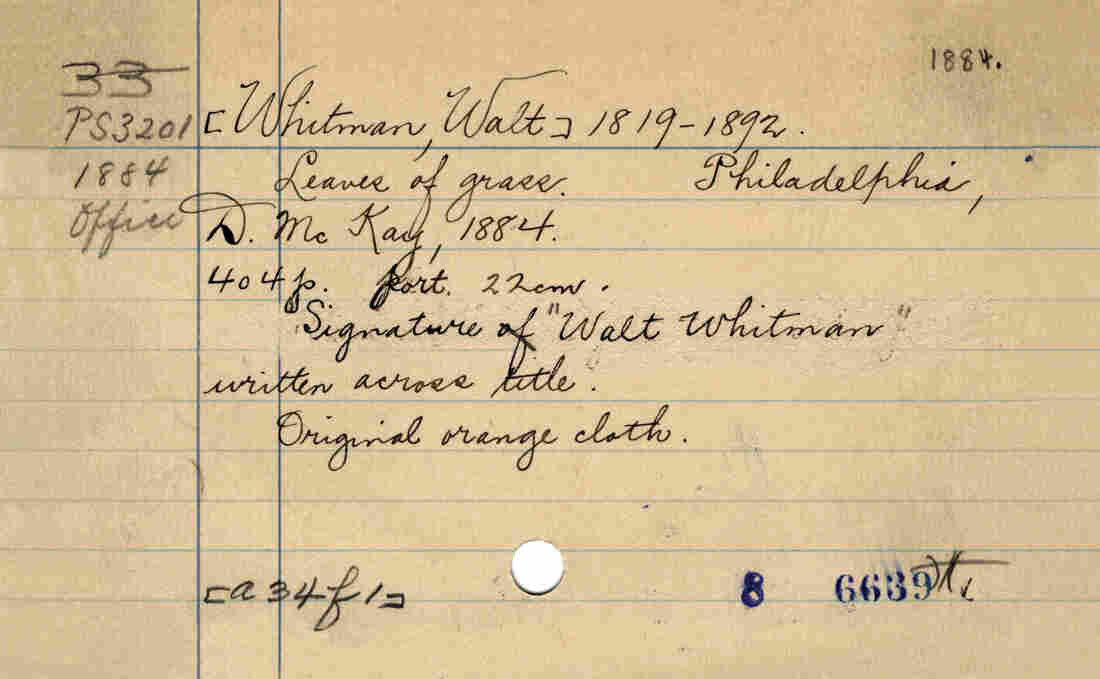 1884.
33
[Whitman, Walt] 1819-1892.
PS3201
1884
Office
Leaves of grass. Philadelphia,
D. Mc Kay, 1884.
404 p. port. 22cm.
Signature of "Walt Whitman"
written across title.
Original orange cloth.
[a34f1]
8 6639